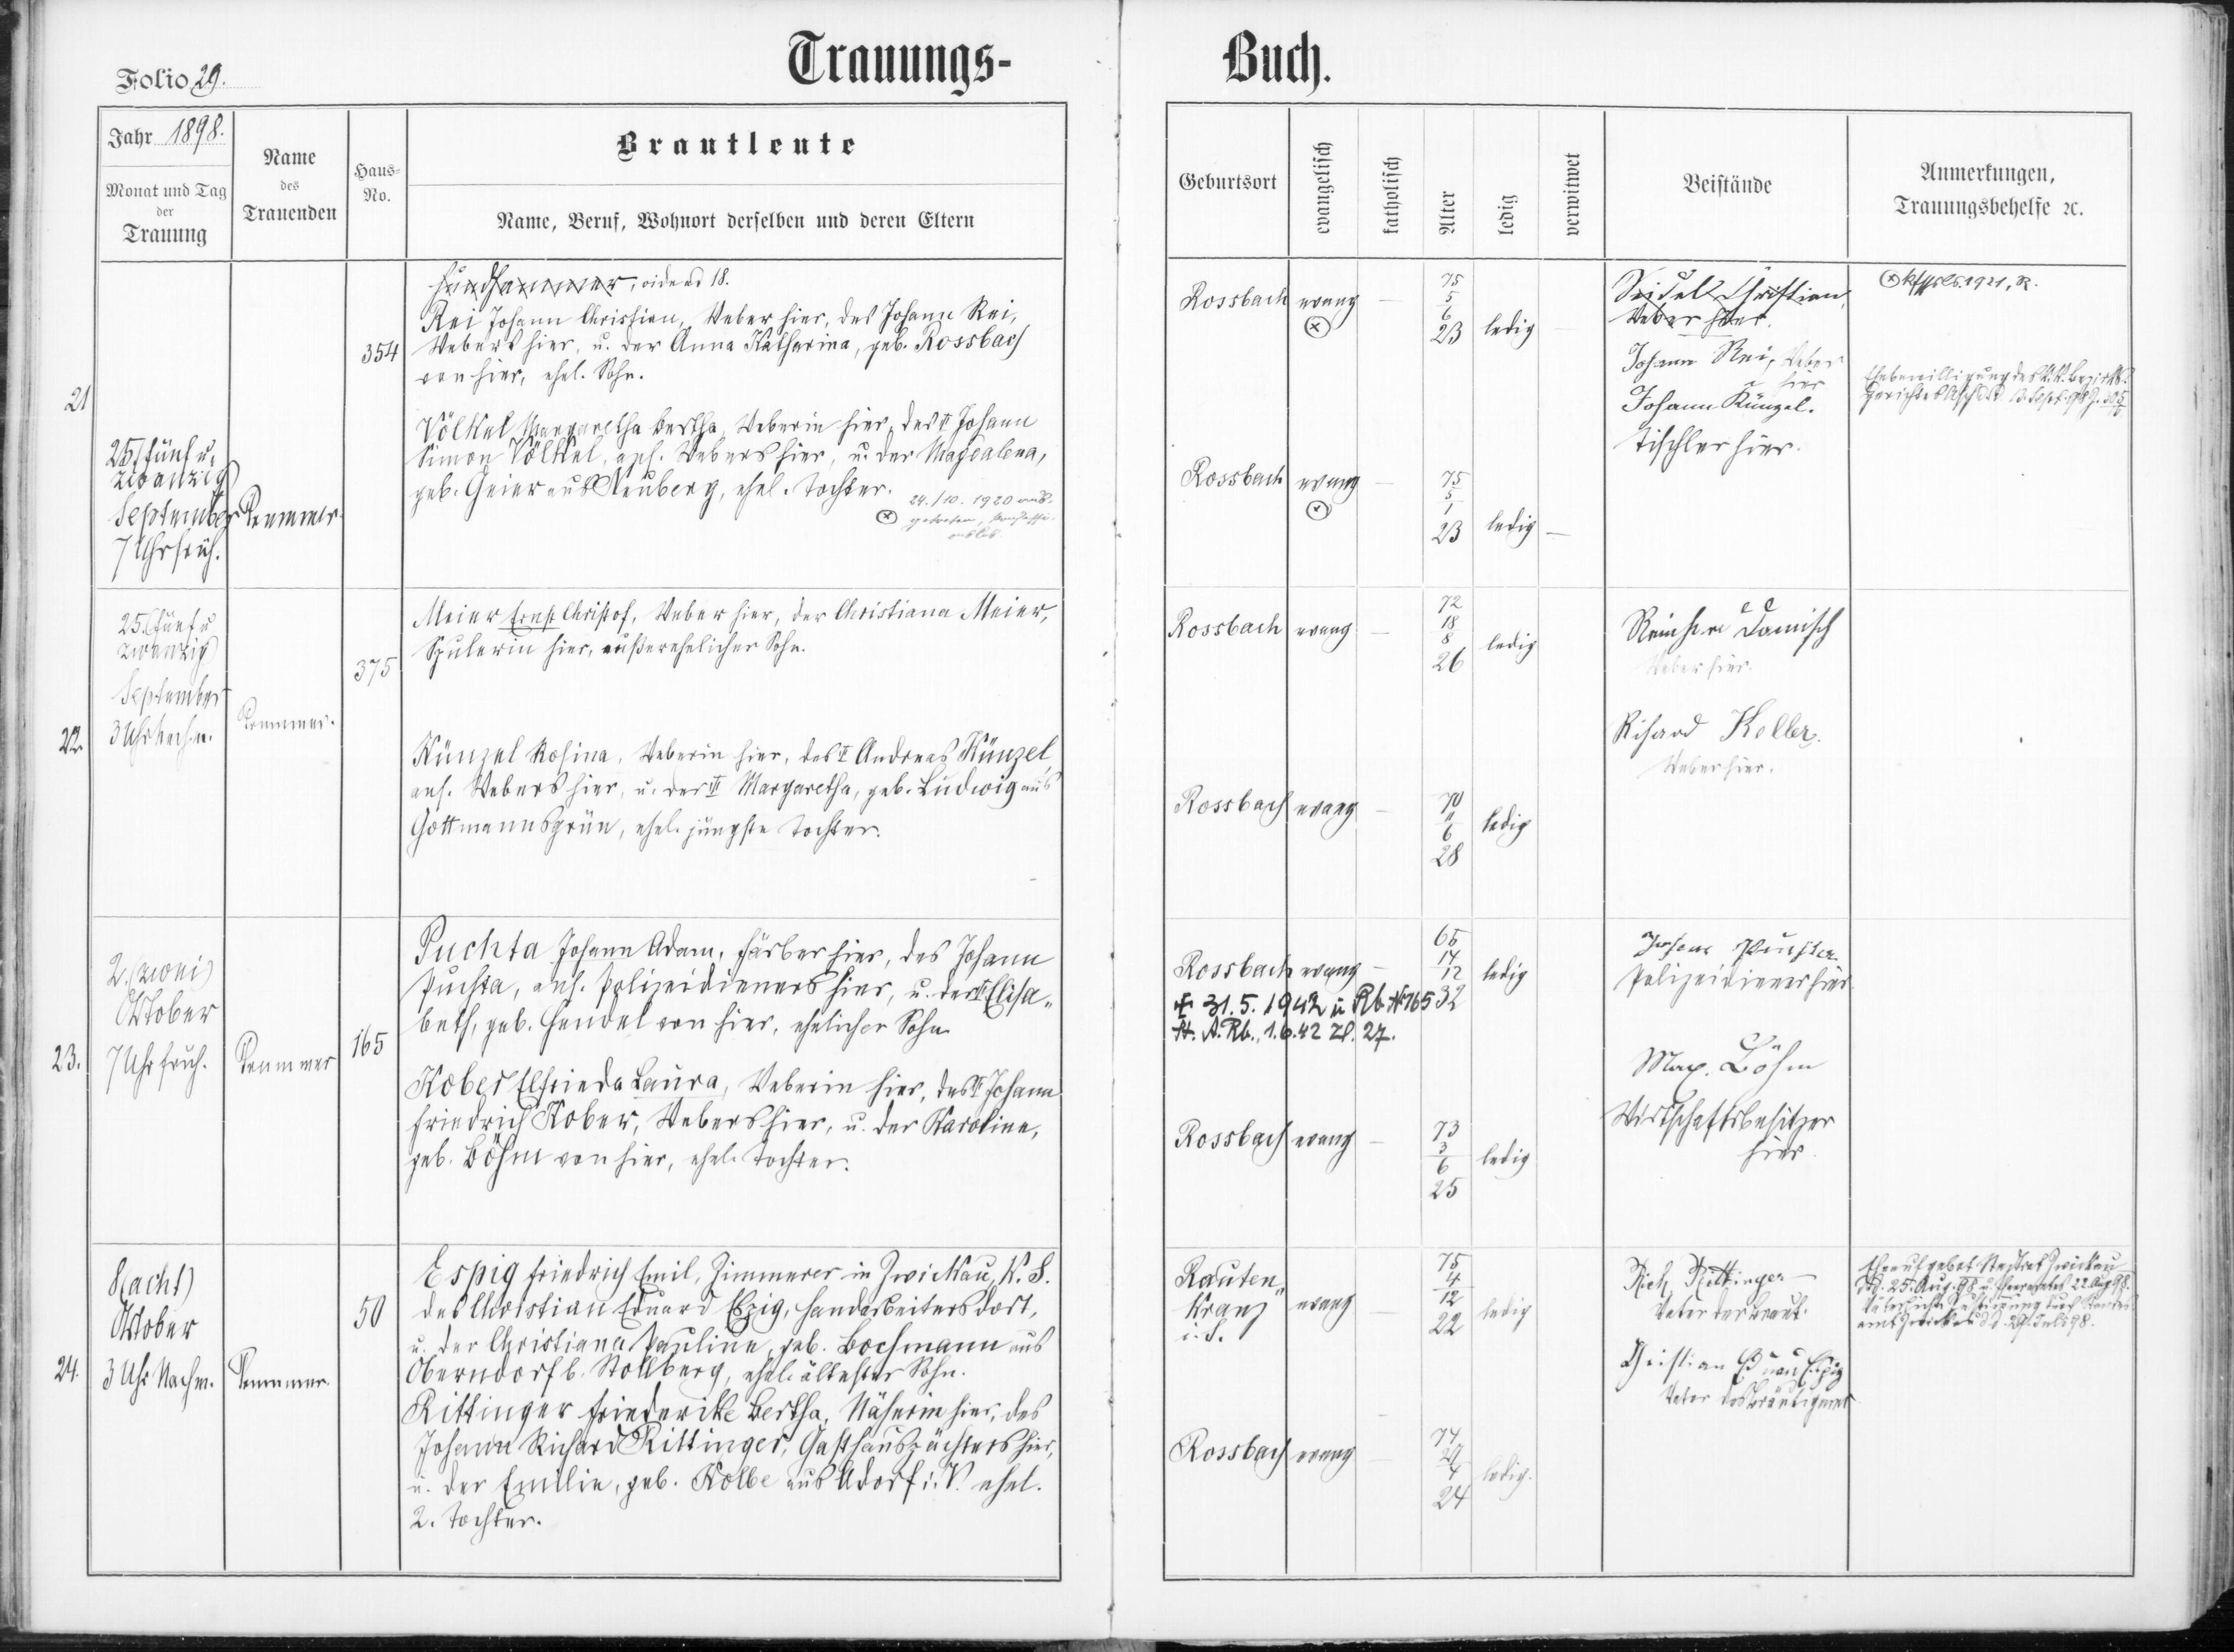 Trauungs-
Buch.
Folio 29.
Jahr 1898.
Monat und Tag
der
Trauung
Name
des
Trauenden
Haus-
No.
Brautleute
Name, Beruf, Wohnort derselben und deren Eltern
Geburtsort
evangelisch
katholisch
Alter
ledig
verwitwet
Beistände
Anmerkungen,
Trauungsbehelfe ꝛc.
21
25. (fünf u.
zwanzig)
September
7 Uhr früh.
354
18.
Rei Johann Christian, Weber hier, des Johann Rei,
Webers hier, u. der Anna Katharina, geb. Rossbach
von hier, ehel. Sohn.
Völkel Margaretha Bertha, Weberin hier, des Johann
Simon Völkel, ans. Webers hier, u. der Magdalena,
geb. Geier aus Neuberg, ehel. Tochter.
24./10. 1920
Rossbach evang
75
5
6
23
ledig
Rossbach evang
75
5
1
23
ledig
Seidel Christian,
Weber hier.
Johann Rei, Weber
hier
Johann Künzel.
Tischler hier.
1921
Ehebewilligung des k.k. Bezirks-
22.
25. (fünf u
zwanzig)
September
3 Uhr Nachm.
375
Meier Ernst Christof, Weber hier, der Christiana Meier,
Spulerin hier, außerehelicher Sohn.
Künzel Rosina, Weberin hier, des II Andreas Künzel,
ans. Webers hier, u. der II Margaretha, geb. Ludwig aus
Gottmannsgrün, ehel. jüngste Tochter.
Rossbach evang
72
18
8
26
ledig
Rossbach evang
70
6
28
ledig
Damisch
Weber hier.
Richard Keller.
Weber hier.
23.
2. (zwei)
Oktober
7 Uhr früh.
165
Puchta Johann Adam, Färber hier, des Johann
Puchta, ans. Polizeidieners hier, u. der II Elisa-
beth, geb. Hendel von hier, ehelicher Sohn.
Kober Elfrieda Laura, Weberin hier, des II Johann
Friedrich Kober, Webers hier, u. der Karoline,
geb. Böhm von hier, ehel. Tochter.
Rossbach evang
65
14
12
32
ledig
31.5.1942 Rb. № 165
A. Rb., 1.6.42 Zl. 27.
Rossbach evang
73
3
6
25
ledig
Johann Puchta
Polizeidiener hier.
Max. Böhm
Wirtschaftsbesitzer
hier.
24.
8 (acht)
Oktober
3 Uhr Nachm.
50
Espig Friedrich Emil, Zimmerer in Zwickau, K. S.
des Christian Eduard Espig, Handarbeiters dort,
u. der Christiana Pauline, geb. Bochmann aus
Oberndorf b. Stollberg, ehel. ältester Sohn.
Rittinger Friederike Bertha, Näherin hier, des
Johann Richard Rittinger, Gasthauspächters hier,
u. der Emilie, geb. Kolbe aus Adorf i. V. ehel.
2. Tochter.
Rauten-
kranz
i. S.
evang
75
4
12
22
ledig
Rossbach evang
74
4
24
ledig.
Rich Rittinger
Vater der Braut.
Christian Eduard Espig
Vater des Bräutigams
Zwickau
25. Aug. 98
22. Aug 98.
29. Juli 98.